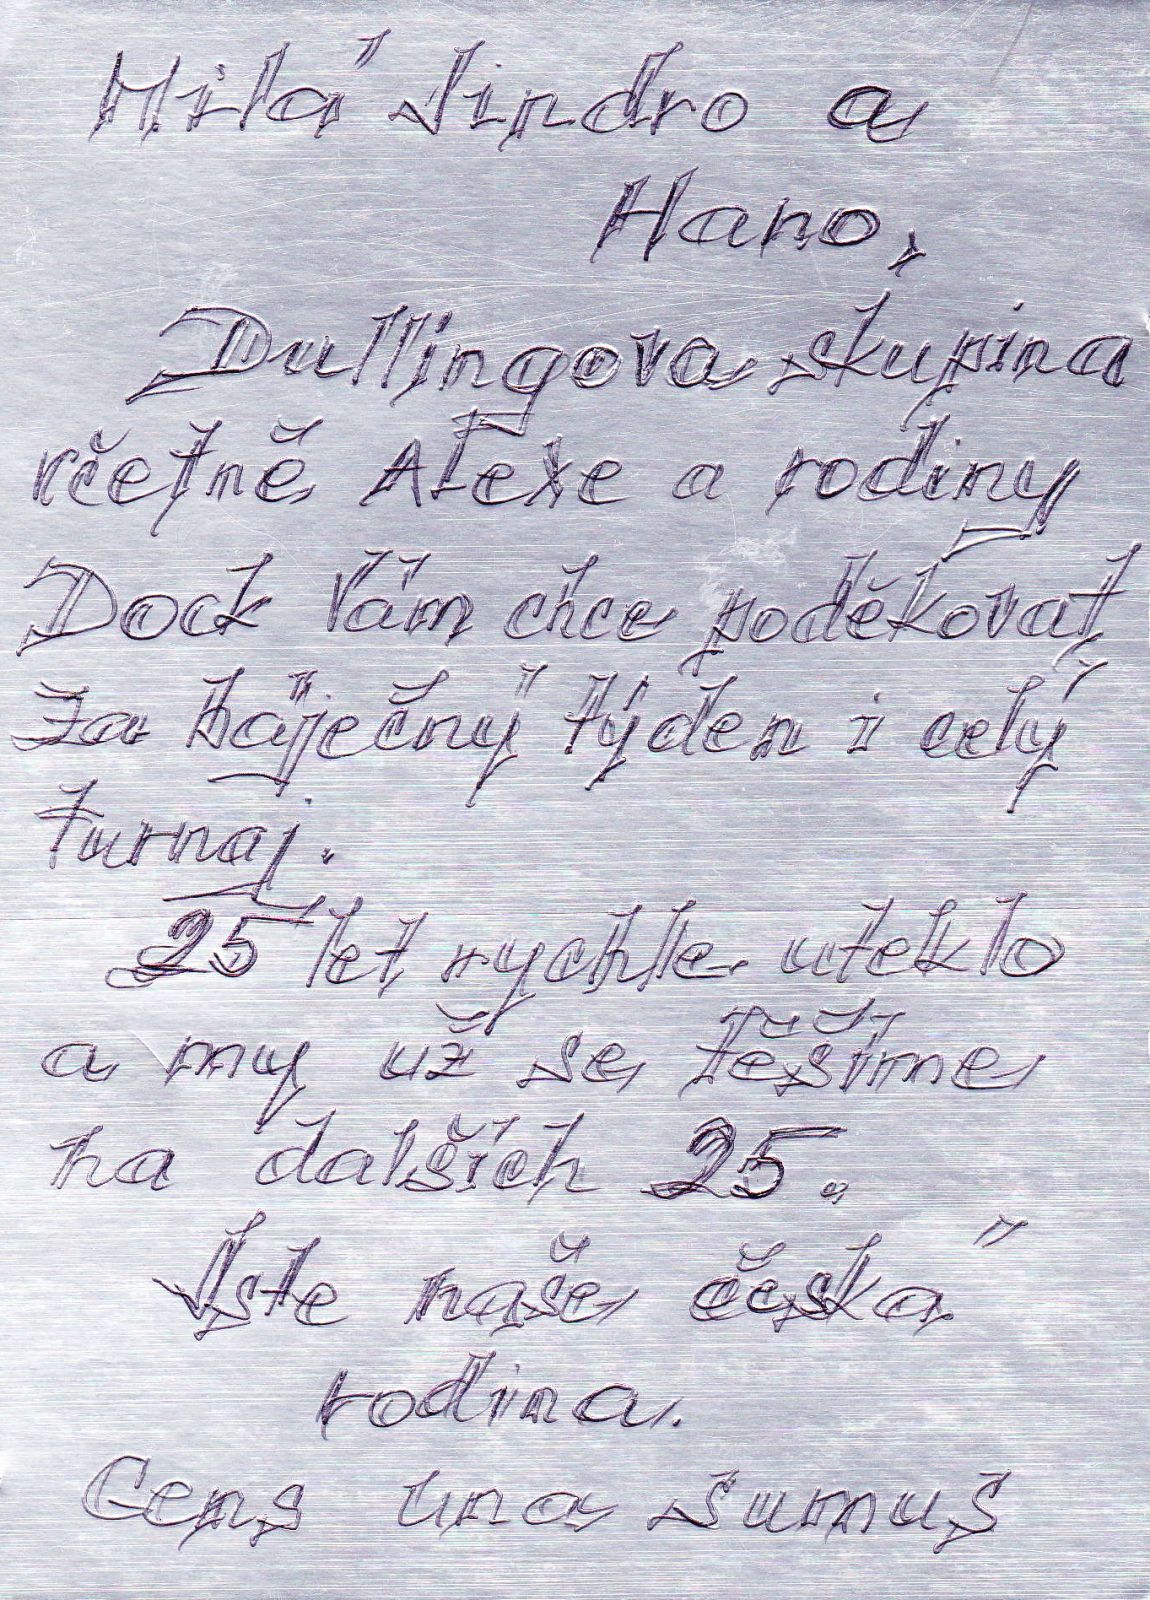 Milá Jindro a
Hano,
Dullingova skupina
včetně Alexe a rodiny
Dock Vám chce poděkovat
za báječný týden i celý
turnaj.
25 let rychle uteklo
a my už se těšíme
na dalších 25.
Jste naše česká
rodina.
Gens una sumus